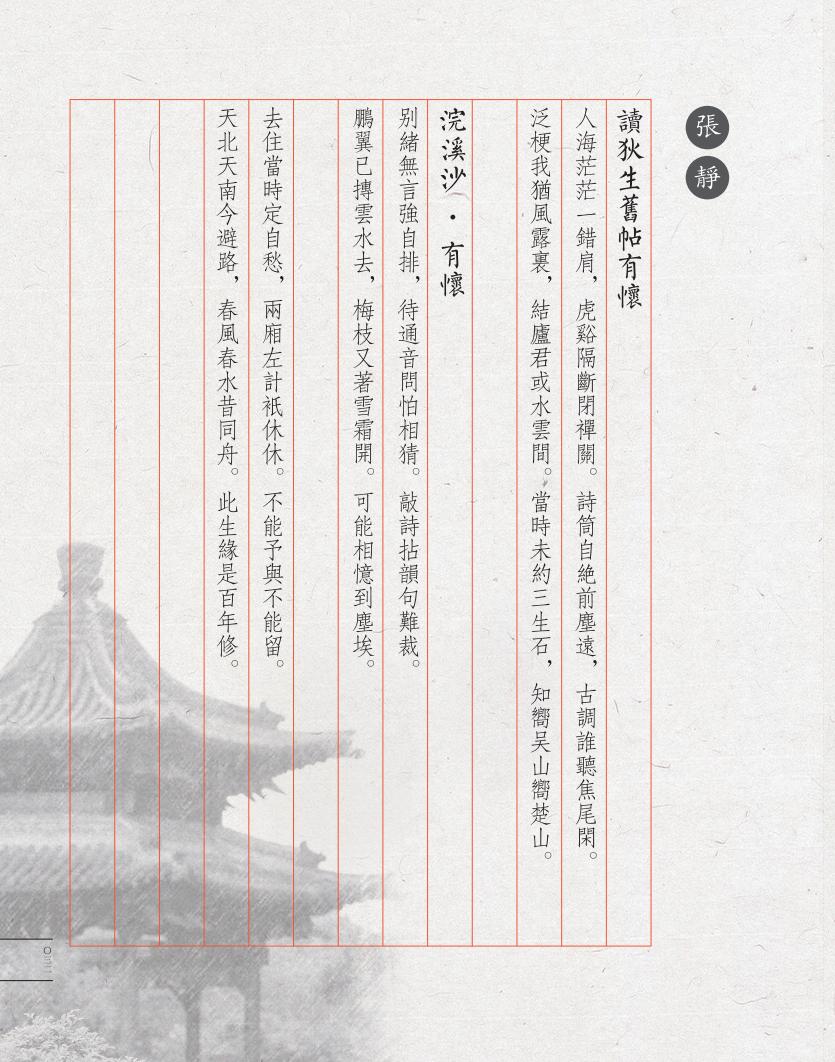 張靜
讀狄生舊帖有懷
人海茫茫一錯肩，虎谿隔斷閉禪關。詩筒自絕前塵遠，古調誰聽焦尾閑。
泛梗我猶風露裏，結廬君或水雲間。當時未約三生石，知嚮吴山嚮楚山。
浣溪沙・有懷
别緒無言強自排，待通音問怕相猜。敲詩拈韻句難裁。
鵬翼已摶雲水去，梅枝又著雪霜開。可能相憶到塵埃。
去住當時定自愁，兩廂左計衹休休。不能予與不能留。
天北天南今避路，春風春水昔同舟。此生緣是百年修。